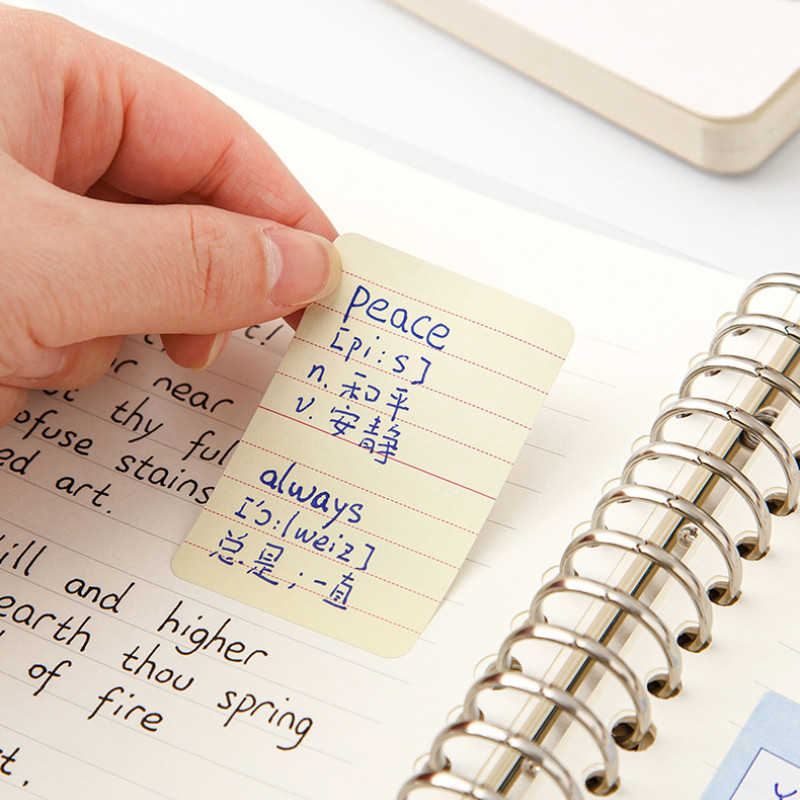 peace
[pi:s]
n. 和平
v. 安静
always
['ɔ:lweiz]
总是;一直
near
thy
stains
art.
and higher
earth thou spring
of fire